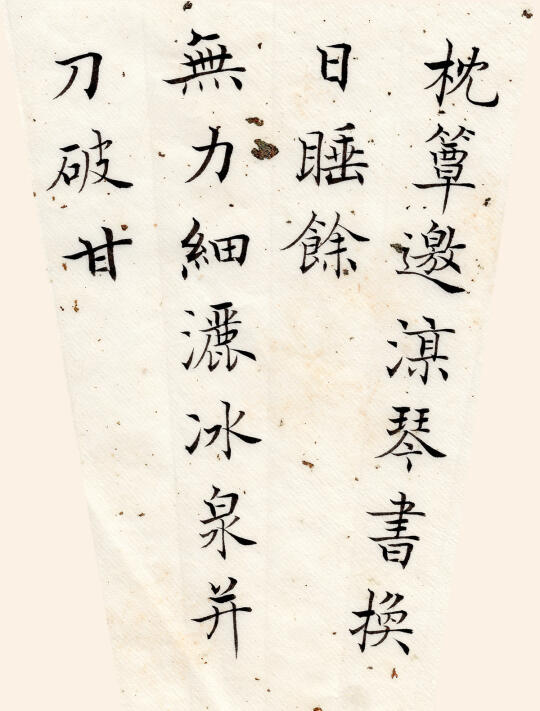 枕簟邀涼琴書換
日睡餘
無力細灑冰泉并
刀破甘